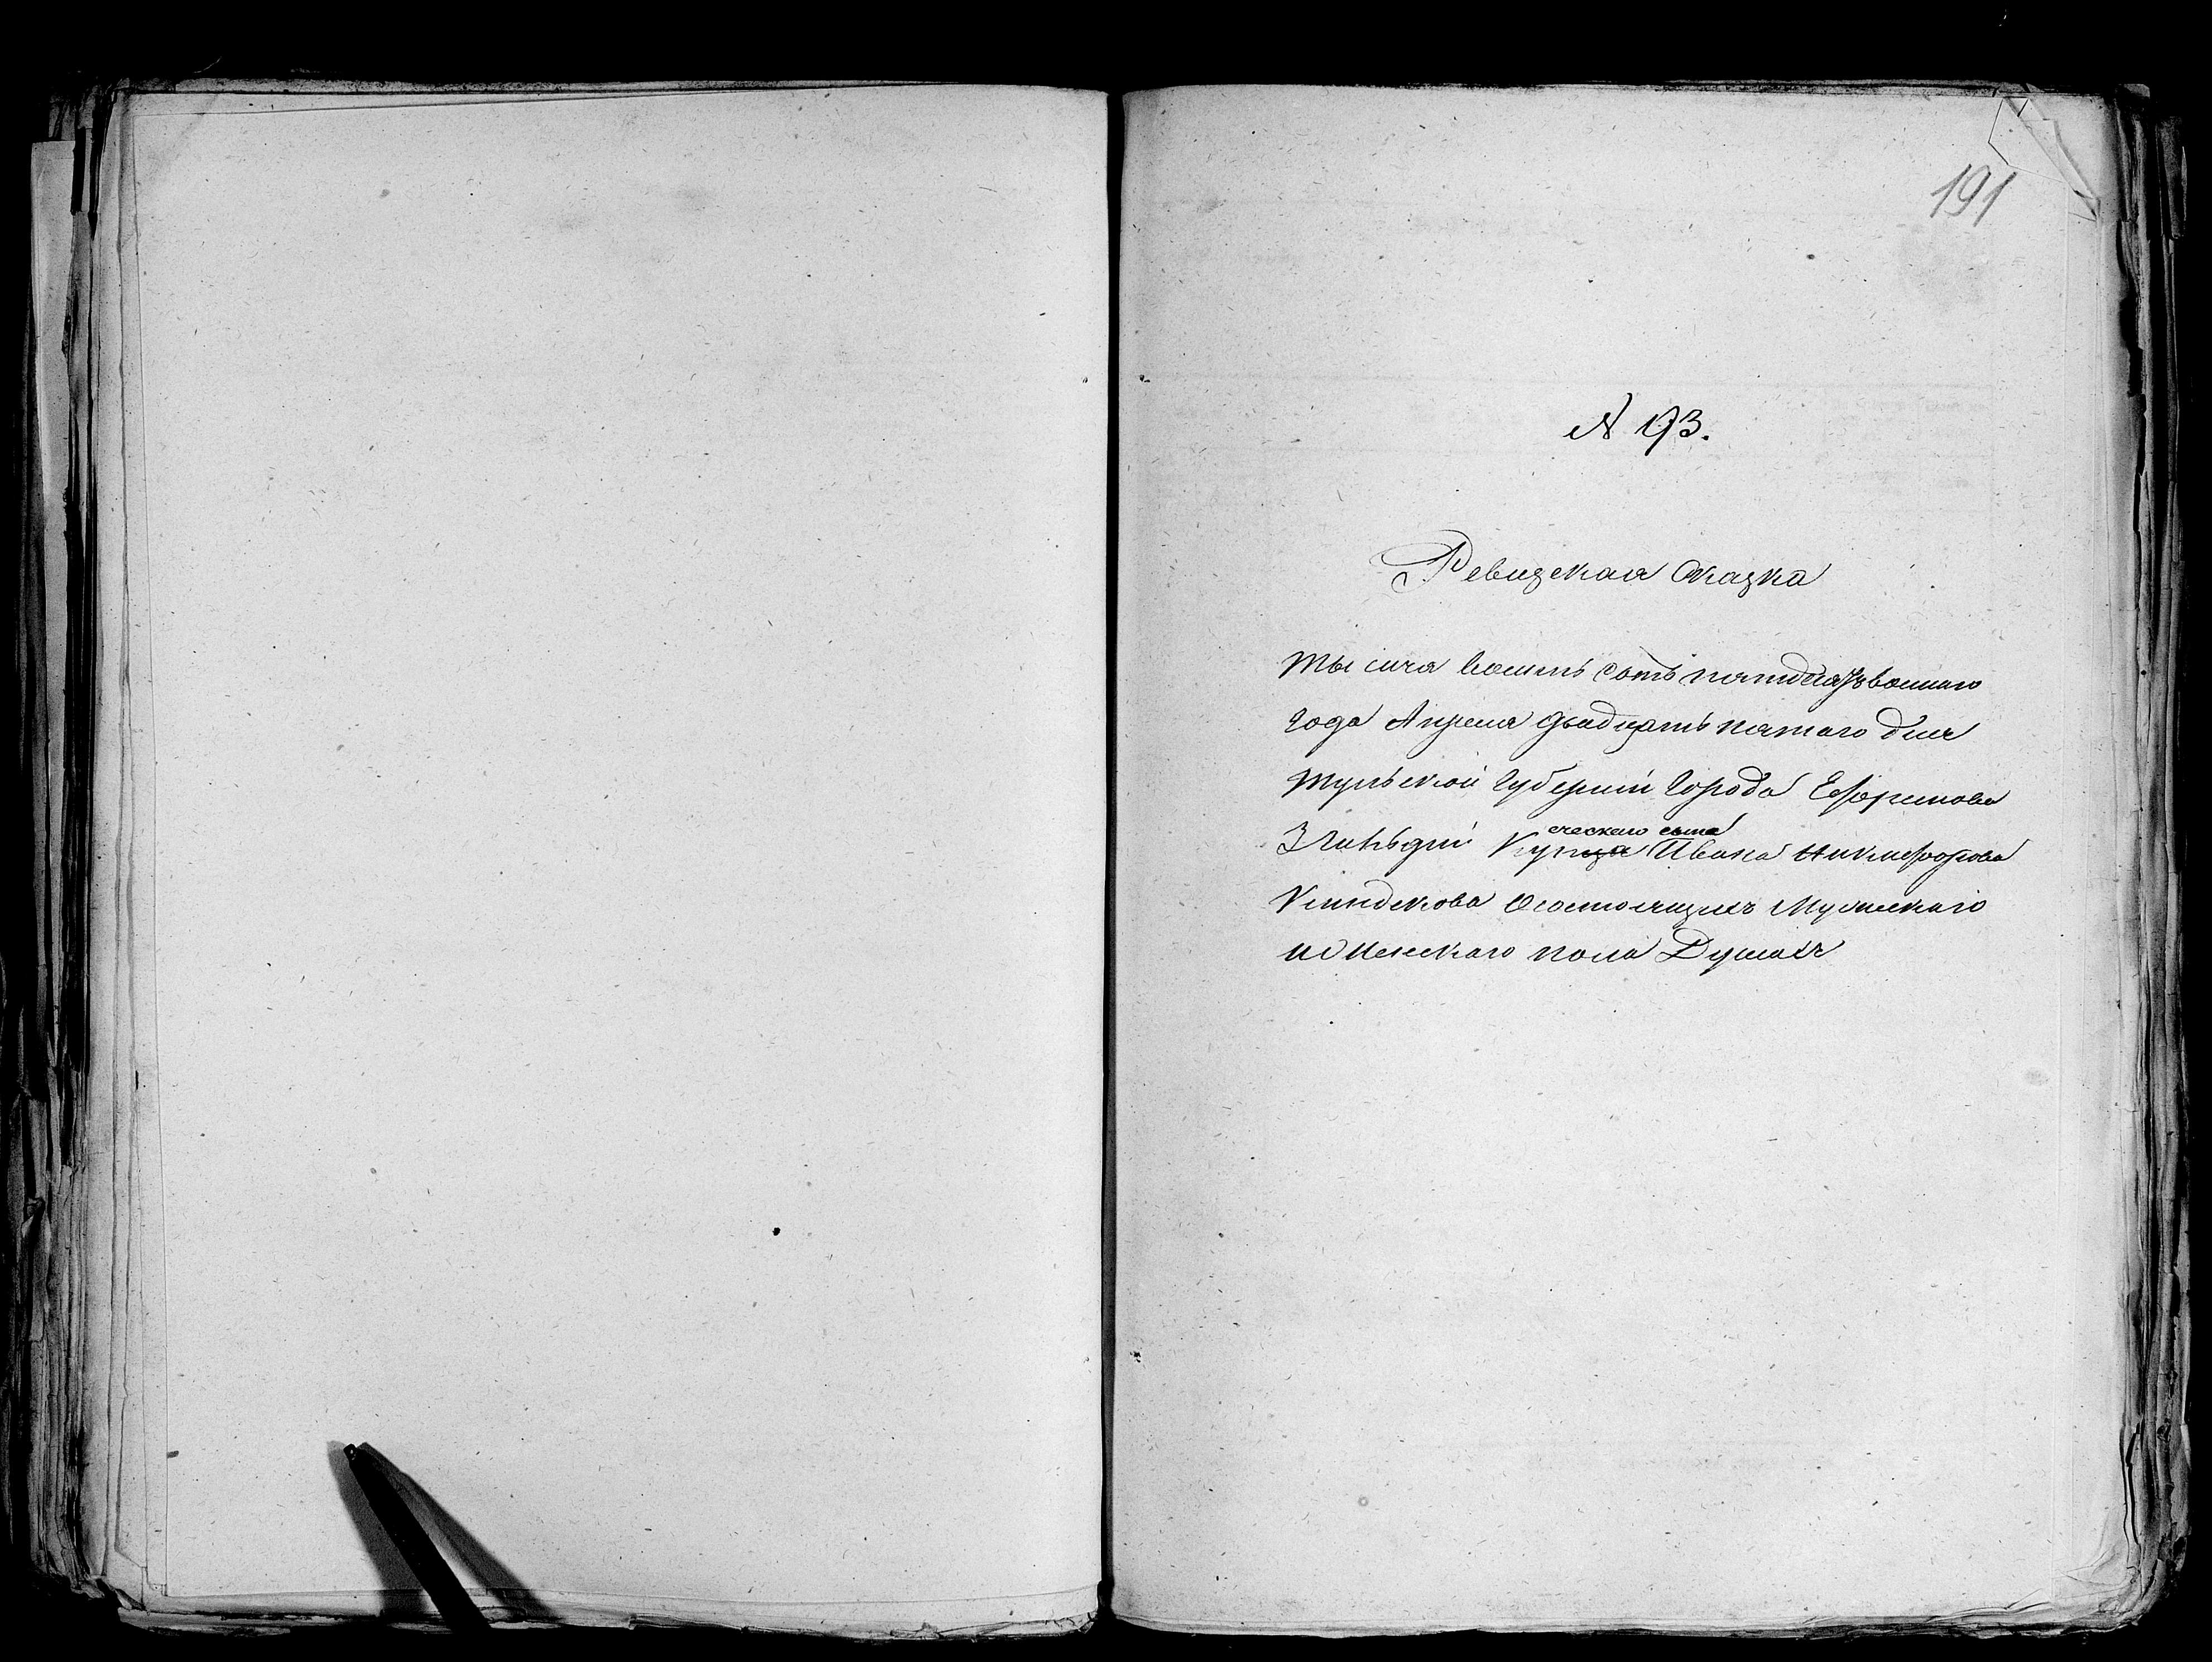 191
№ 93.
Ревизская Сказка
Тысяча восемь сотъ пятидесятъ восмаго
Года Апреля двадцать пятаго дня
Тульской Губерніи Города Ефремова
3 гильдіи Купческаго сына Ивана Никифорова
Кландюкова О состоящихъ Мужескаго
и Женскаго пола Душахъ